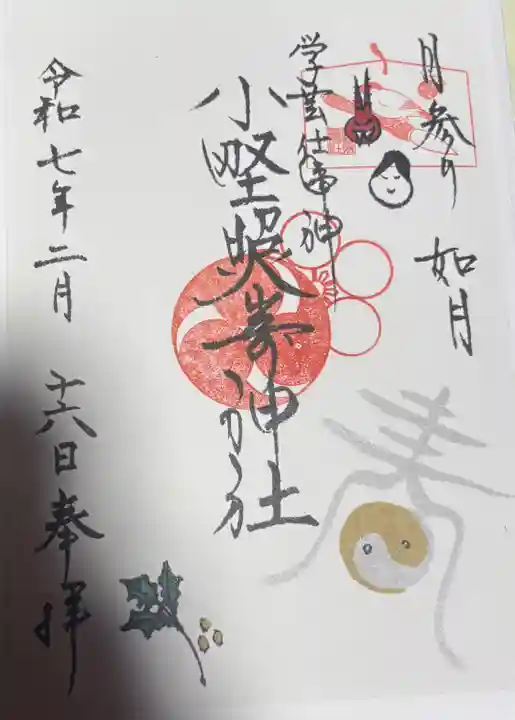 月参り 如月
学芸仕事神
小野照崎神社
春
令和七年二月 十六日奉拝